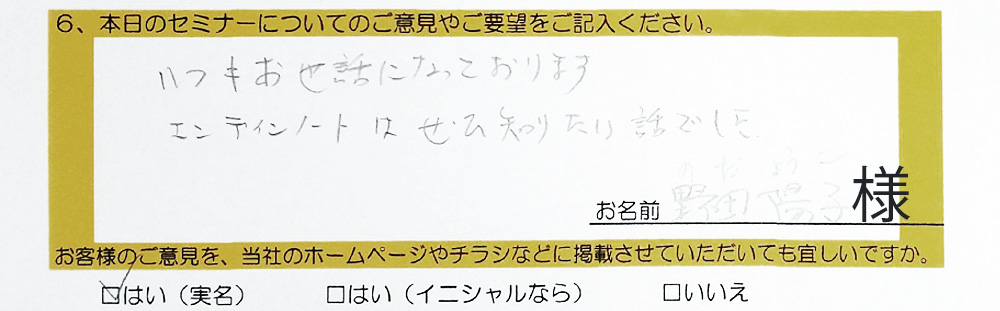 6、本日のセミナーについてのご意見やご要望をご記入ください。
いつもお世話になっております
エンディンノートは ぜひ知りたい話でした.
のだ ようこ
お名前 野田 陽子 様
お客様のご意見を、当社のホームページやチラシなどに掲載させていただいても宜しいですか。
☑はい（実名） □はい（イニシャルなら） □いいえ